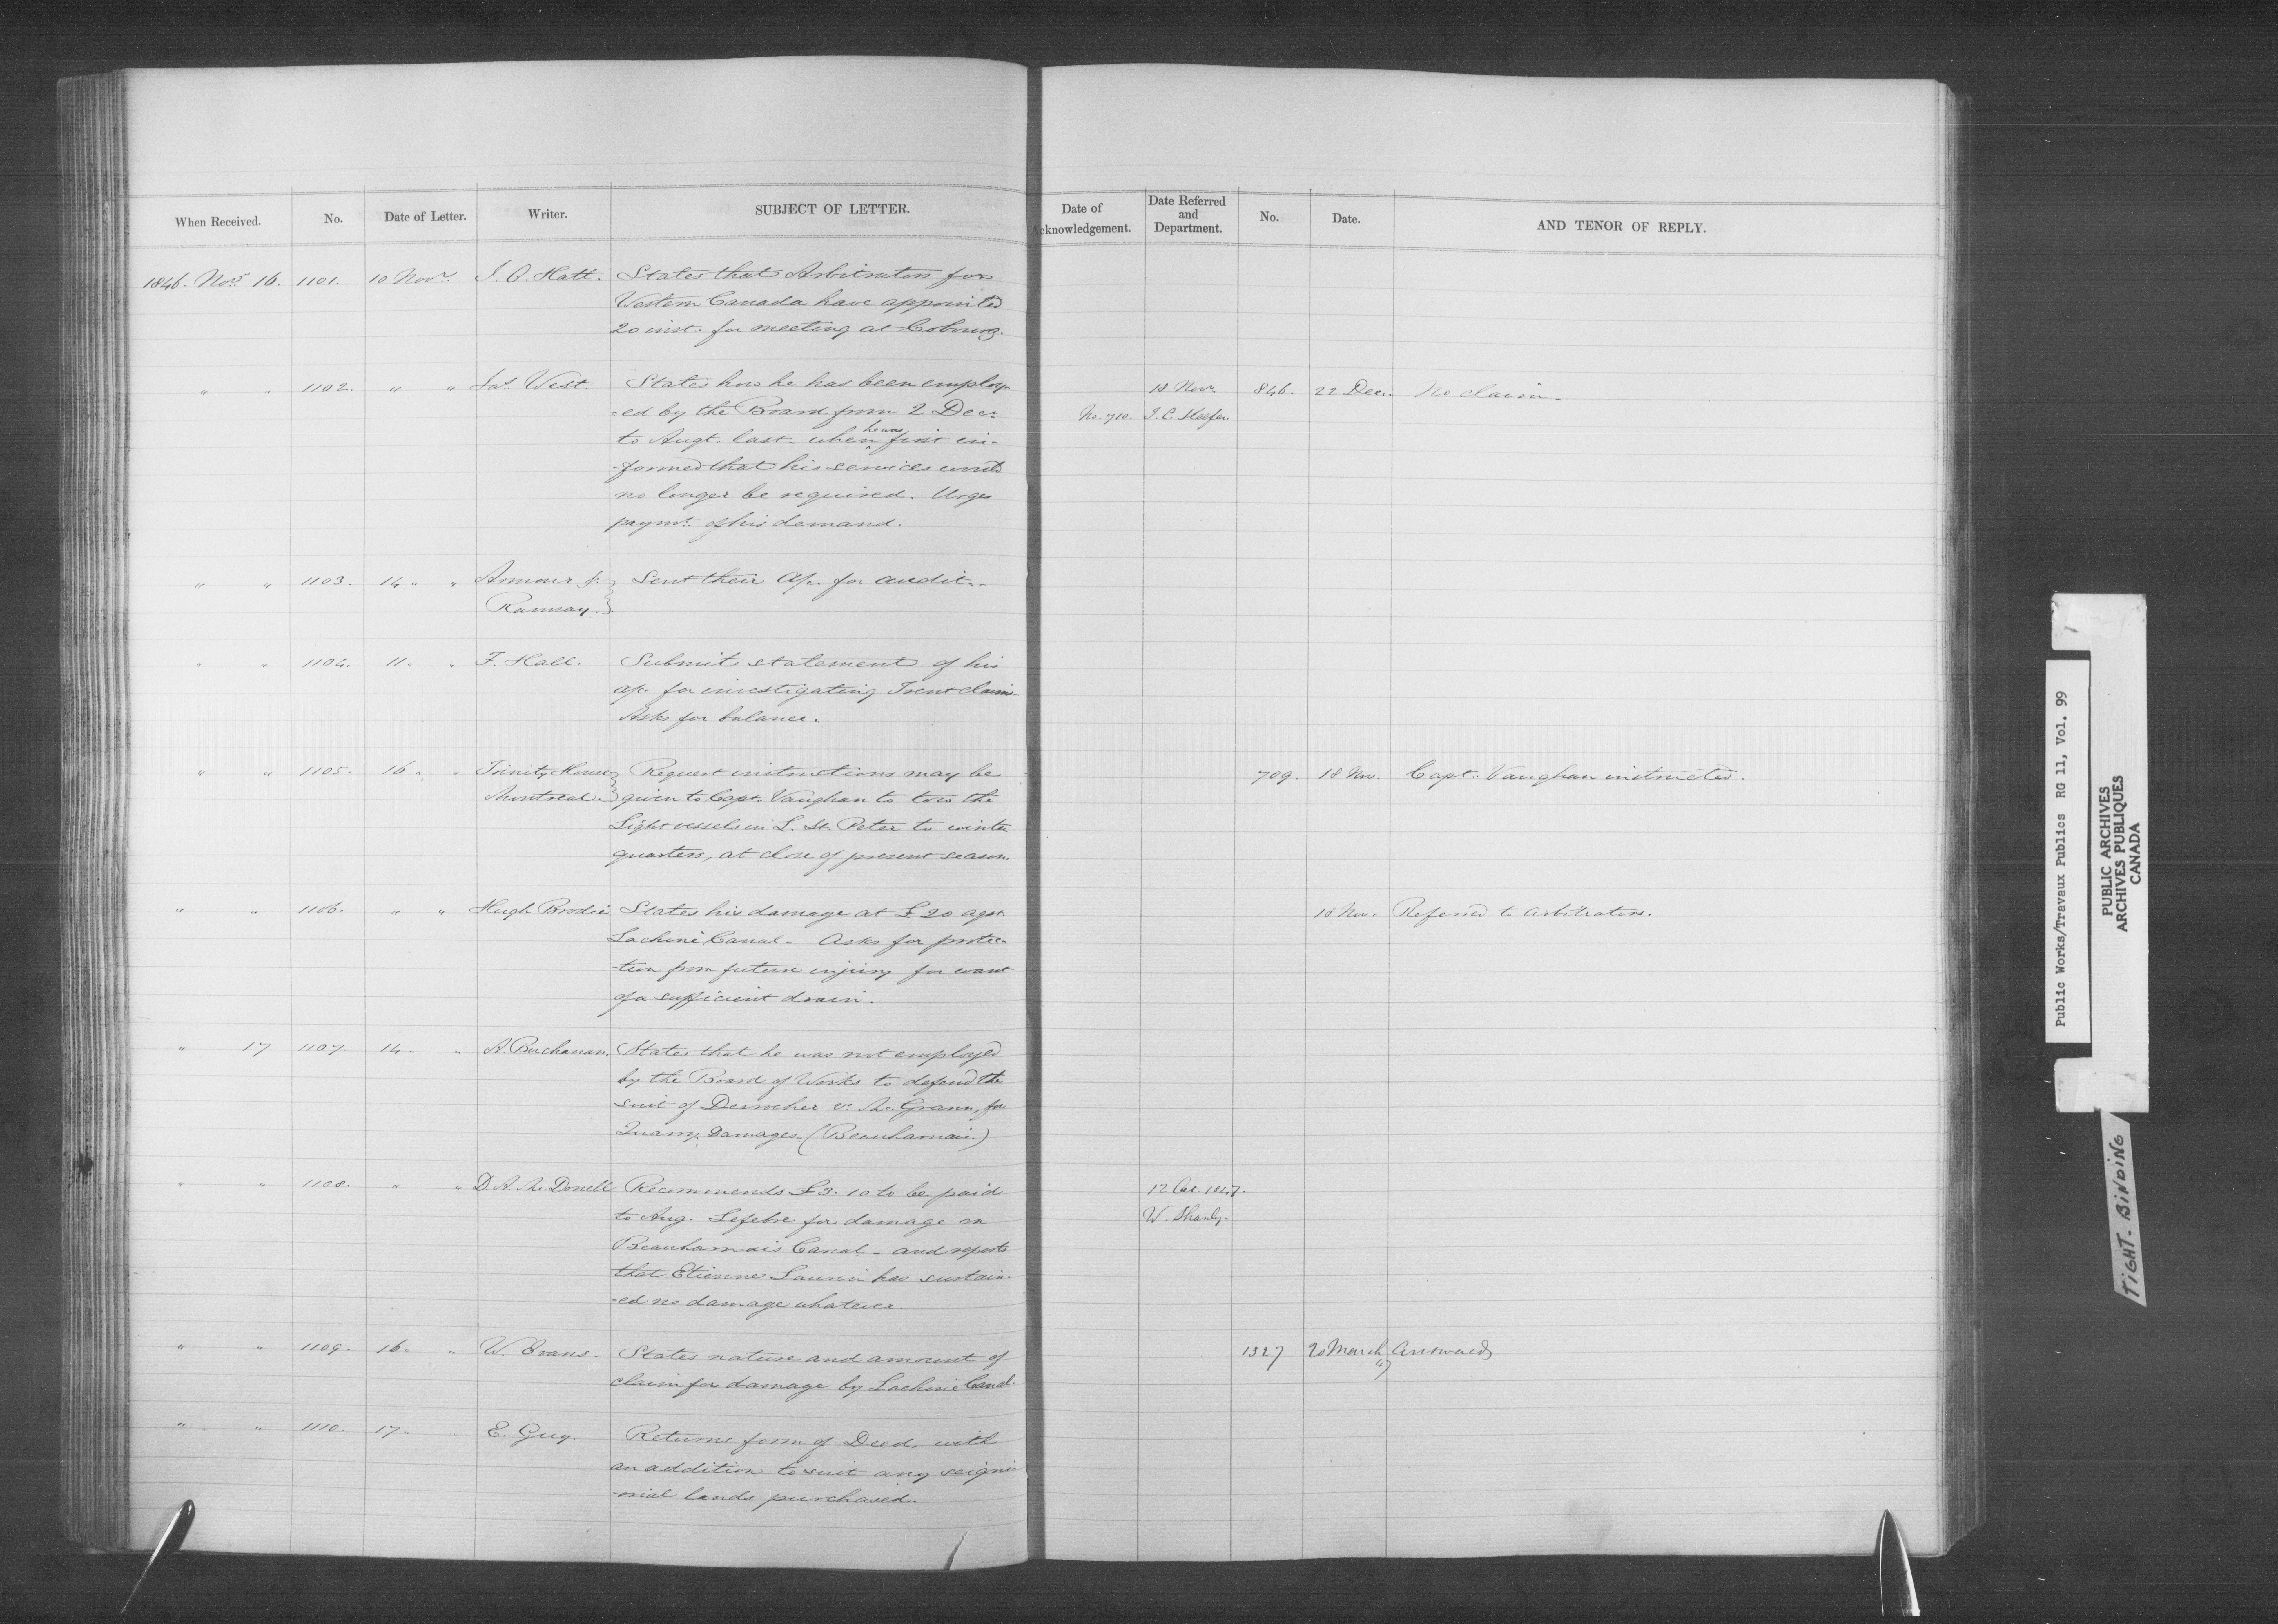 When Received. No. Date of Letter. Writer. SUBJECT OF LETTER. Date of Acknowledgement. Date Referred and Department. No. Date. AND TENOR OF REPLY.
1846. Novr 16. 1101. 10 Novr. J. O. Hatt. States that Arbitrators for
Western Canada have appointed
20 inst. for meeting at Cobourg.
" " 1102. " " Jas. West. States how he has been employ- 18 Novr. 846. 22 Dec. No claim.
-ed by the Board from 2 Decr. No. 710. T. C. Keefer
to Augt. last - when he was first in-
-formed that his services would
no longer be required. Urges
paymt. of his demand.
" " 1103. 14 " " Armour & Sent their a/c. for audit.
Ramsay.
" " 1104. 11 " " F. Hall. Submits statement of his
a/c. for investigating Trent claims.
Asks for balance.
" " 1105. 16 " " Trinity House Request instructions may be 709. 18 Nov. Capt. Vaughan instructed.
Montreal. given to Capt. Vaughan to tow the
Light vessels in L. St. Peter to winter
quarters, at close of present season.
" " 1106. " " Hugh Brodie States his damage at £20 agst. 18 Nov. Referred to arbitrators.
Lachine Canal - Asks for protec-
-tion from future injury for want
of a sufficient drain.
" 17 1107. 14 " " A. Buchanan. States that he was not employed
by the Board of Works to defend the
suit of Desrocher v. McGrann, for
Quarry Damages (Beauharnais)
" " 1108. " " D. A. McDonell Recommends £3. 10 to be paid 12 Oct. 1847.
to Aug. Lefebre for damage on W. Shanly.
Beauharnais Canal - and reports
that Etienne has sustain-
-ed no damage whatever.
" " 1109. 16 " " W. Evans. States nature and amount of 1327 20 March 47 Answered
claim for damage by Lachine Canal.
" " 1110. 17 " " E. Guy. Returns form of Deed, with
an addition to suit any seigni-
-orial lands purchased.
Public Works/Travaux Publics RG 11, Vol. 99
PUBLIC ARCHIVES
ARCHIVES PUBLIQUES
CANADA
TIGHT-BINDING